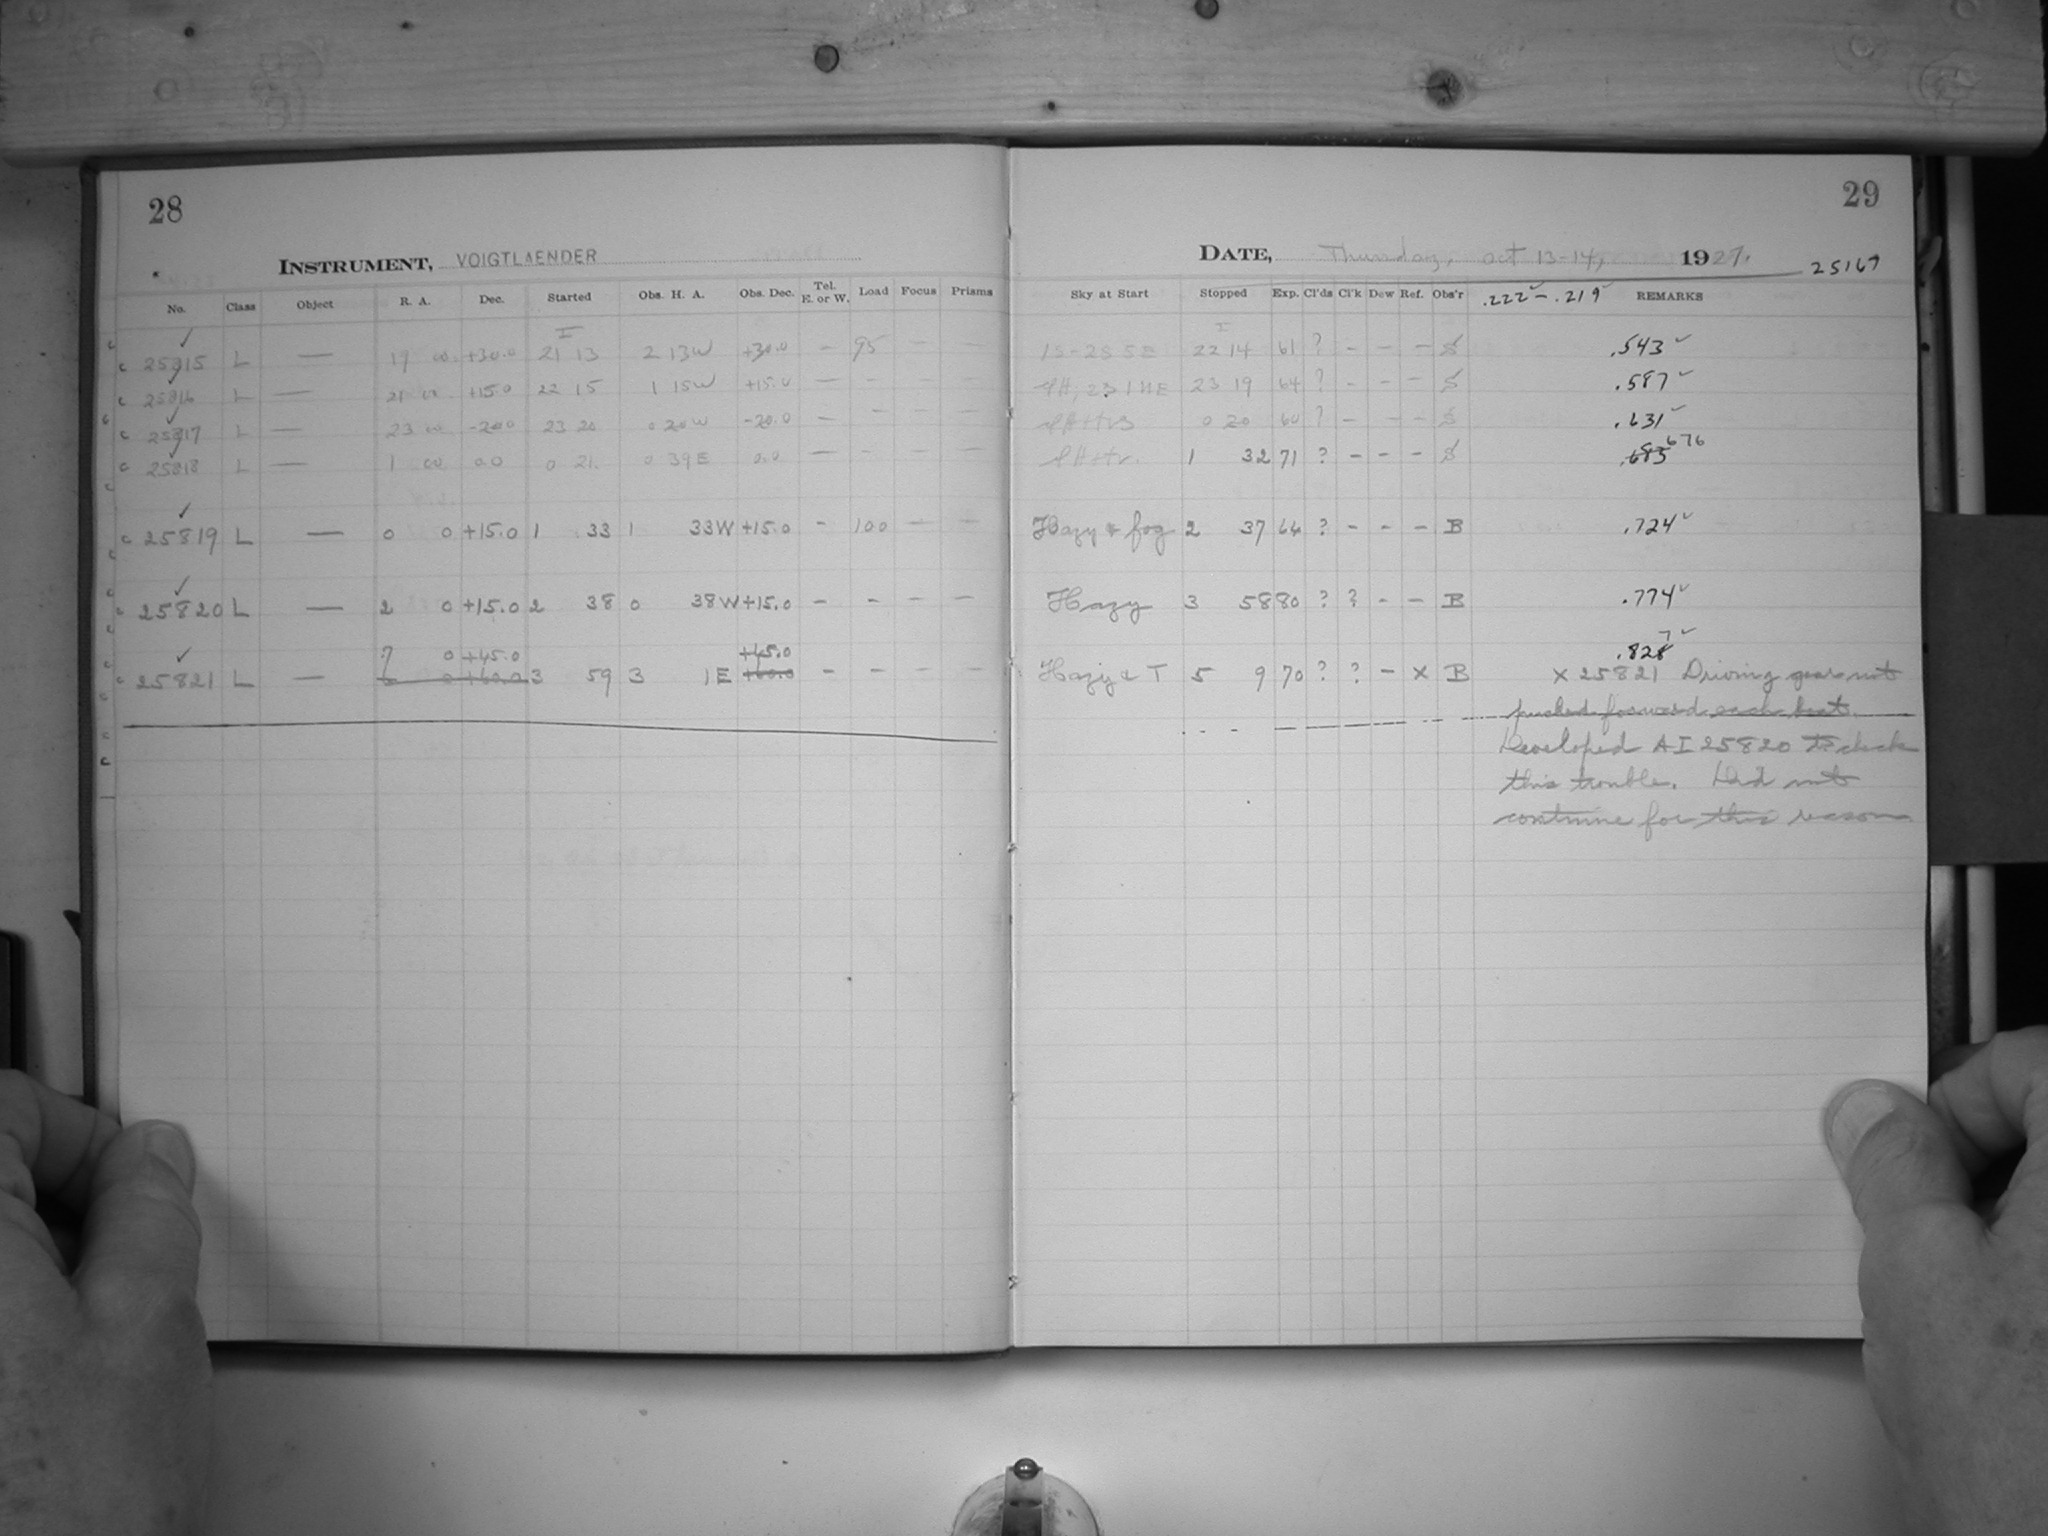 28
INSTRUMENT, VOIGTLAENDER
No. Class Object R. A. Dec. Started Obs. H. A. Obs. Dec. Tel. E. or W. Load Focus Prisms
25815 L — 19 00 +30.0 21 13 2 13W +30.0 – 95 – –
25816 L — 21 00 +15.0 22 15 1 15W +15.0 – – – –
25817 L — 23 00 -20.0 23 20 0 20W -20.0 – – – –
25818 L — 1 00 0.0 0 21 0 39E 0.0 – – – –
25819 L — 0 0 +15.0 1 33 1 33W +15.0 – 100 – –
25820 L — 2 0 +15.0 2 38 0 38W +15.0 – – – –
7 0 +45.0 +45.0
25821 L — 6 0 +60.0 3 59 3 1E +60.0 – – – –
29
DATE, Thursday, Oct 13-14, 1927.
25167
Sky at Start Stopped Exp. Cl'ds Cl'k Dew Ref. Obs'r .222 – .219 REMARKS
22 14 61 ? – – – .543
23 19 64 ? – – – .587
0 20 60 ? – – – .631
1 32 71 ? – – – .683 676
Hazy & fog 2 37 64 ? – – – B .724
Hazy 3 58 80 ? ? – – B .774
.828 7
Hazy & T 5 9 70 ? ? – x B x 25821 Driving gear not
pushed forward each beat.
Developed AI 25820 to check
this trouble. Did not
continue for this reason